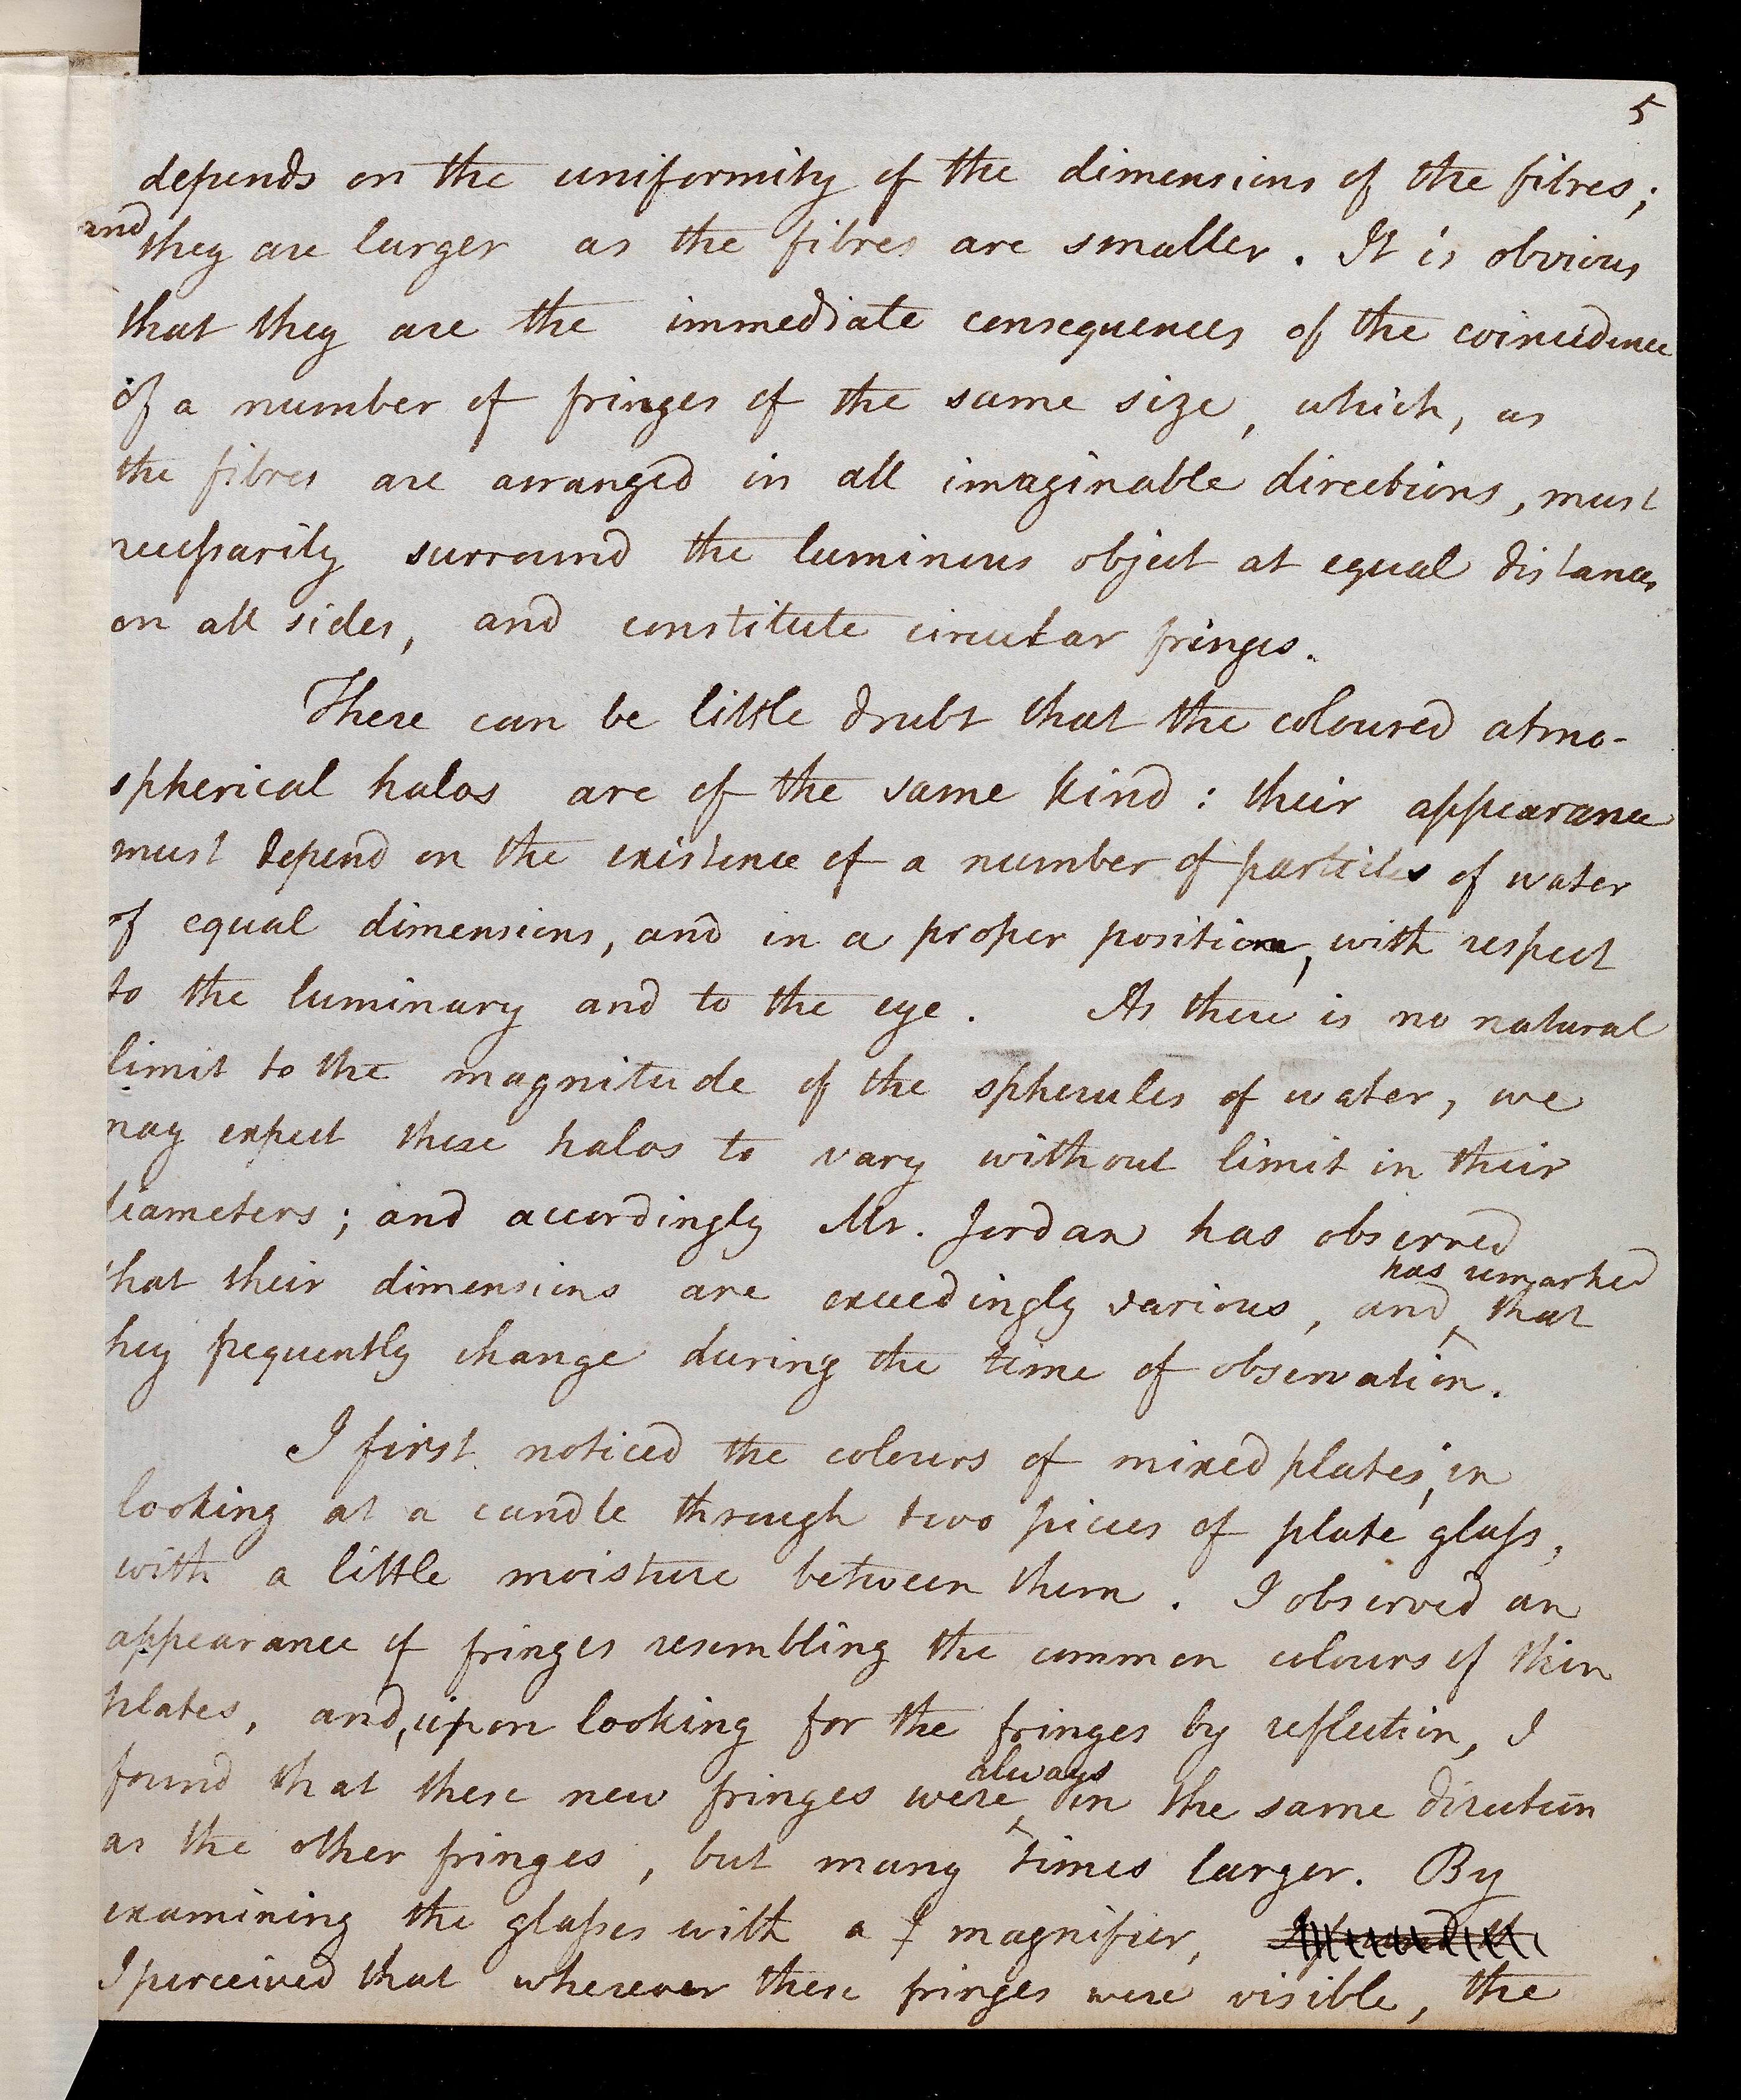 5
depends on the uniformity of the dimensions of the fibres;
and they are larger as the fibres are smaller. It is obvious
that they are the immediate consequences of the coincidence
of a number of fringes of the same size, which, as
the fibres are arranged in all imaginable directions, must
necessarily surround the luminous object at equal distances
on all sides, and constitute circular fringes.
There can be little doubt that the coloured atmo-
spherical halos are of the same kind: their appearance
must depend on the existence of a number of particles of water
of equal dimensions, and in a proper position, with respect
to the luminary and to the eye. As there is no natural
limit to the magnitude of the spherules of water, we
may expect these halos to vary without limit in their
diameters; and accordingly Mr. Jordan has observed
that their dimensions are exceedingly various, and has remarked that
they frequently change during the time of observation.
I first noticed the colours of mixed plates, in
looking at a candle through two pieces of plate glass,
with a little moisture between them. I observed an
appearance of fringes resembling the common colours of thin
plates, and, upon looking for the fringes by reflection, I
found that these new fringes were always in the same direction
as the other fringes, but many times larger. By
examining the glasses with a magnifier,
I perceived that wherever these fringes were visible, the